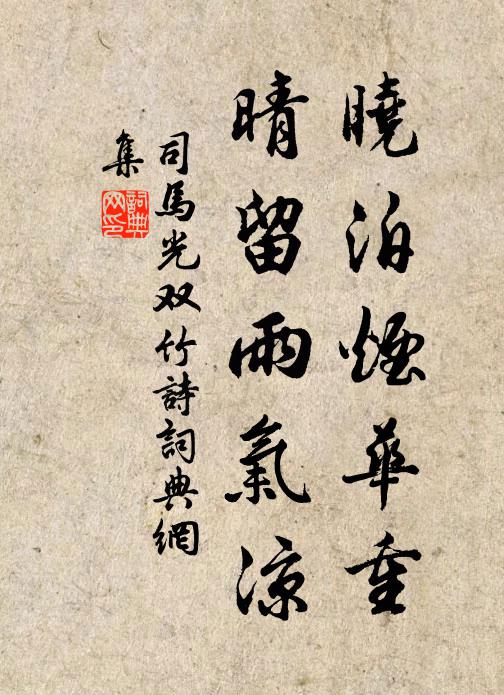 曉泊煙華重
晴留雨氣涼
司馬光双竹詩詞典網
集
詞典网印